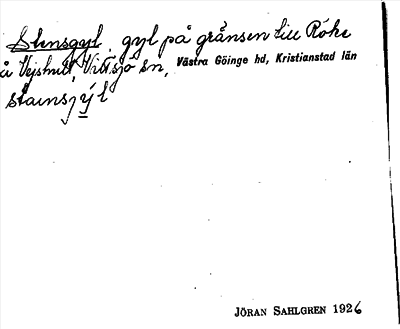 Stensgyl, gyl på gränsen till Röke
å Vejshult, Vittsjö sn, Västra Göinge hd, Kristianstad län
stainsjýl
JÖRAN SAHLGREN 1926